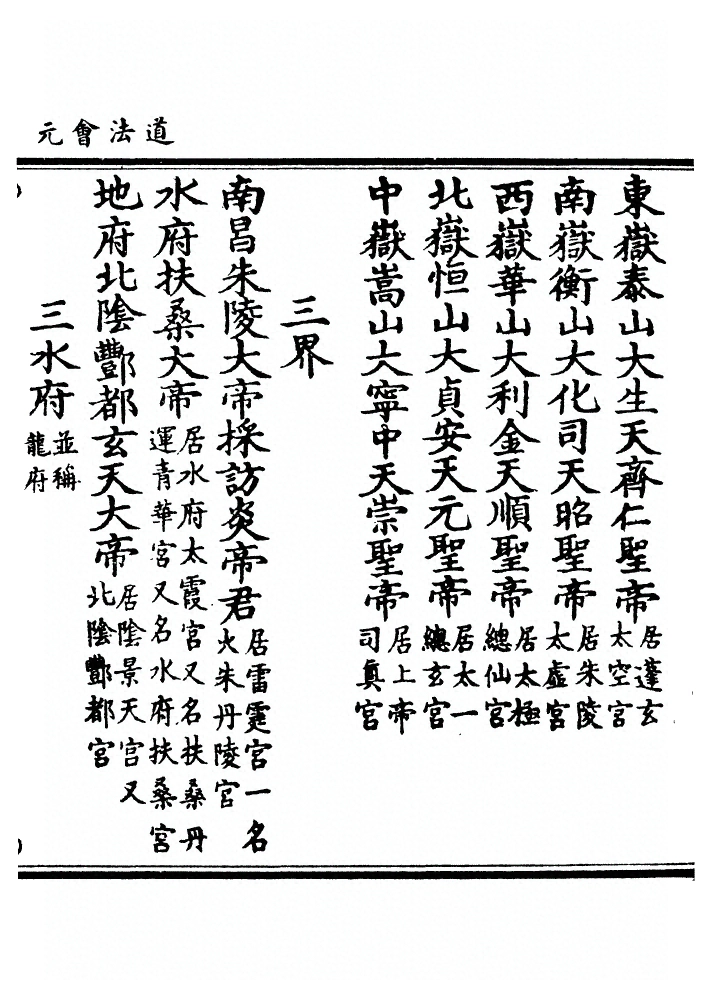 道法會元
東嶽泰山大生天齊仁聖帝居蓬玄太空宮
南嶽衡山大化司天昭聖帝居朱陵太虛宮
西嶽華山大利金天順聖帝居太極總仙宮
北嶽恒山大貞安天元聖帝居太一總玄宮
中嶽嵩山大寧中天崇聖帝居上帝司真宮
三界
南昌朱陵大帝採訪炎帝君居雷霆宮一名火朱丹陵宮
水府扶桑大帝居水府太霞宮又名扶桑丹運青華宮又名水府扶桑宮
地府北陰酆都玄天大帝居陰景天宮又北陰酆都宮
三水府並稱龍府